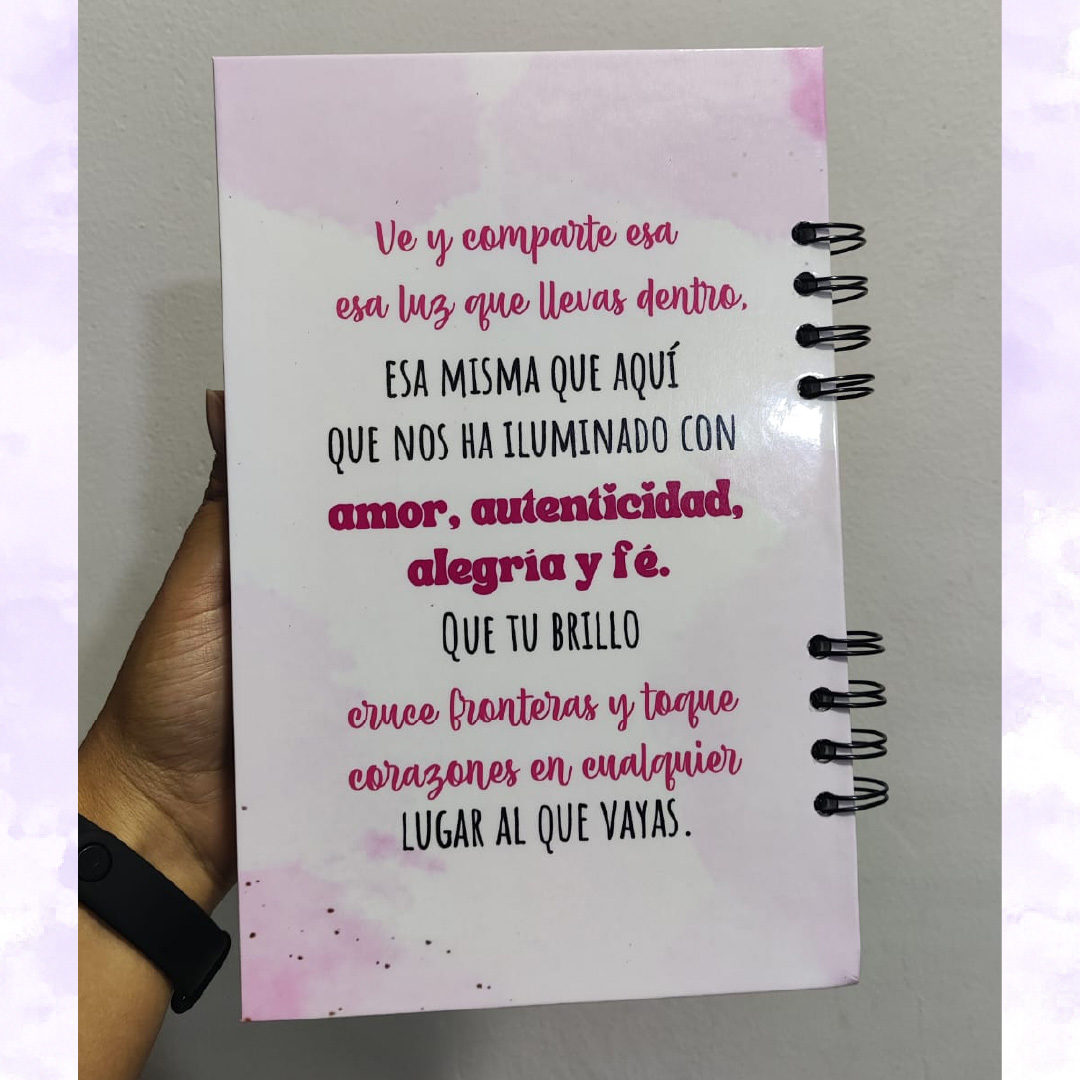 Ve y comparte esa
esa luz que llevas dentro,
ESA MISMA QUE AQUÍ
QUE NOS HA ILUMINADO CON
amor, autenticidad,
alegría y fé.
QUE TU BRILLO
cruce fronteras y toque
corazones en cualquier
LUGAR AL QUE VAYAS.